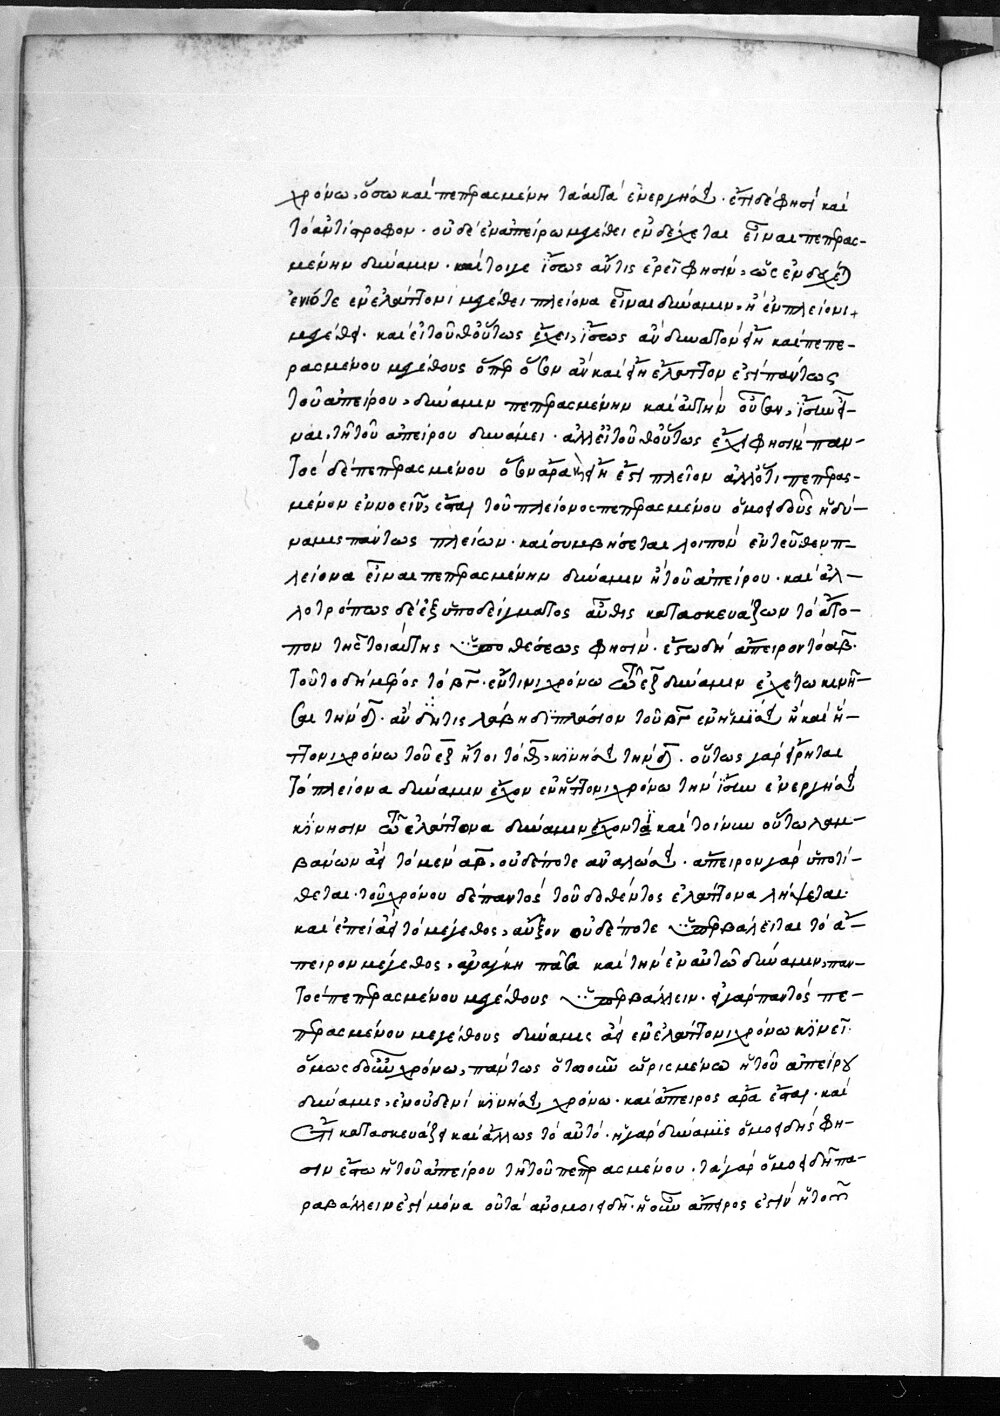 χρόνω, ὅσω καὶ πεπερασμένη τὰ αὐτὰ ἐνεργήσει. ἔτι δέ φησι καὶ
τὸ ἀντίστροφον. οὐδὲ ἐν ἀπείρω μεγέθει ἐνδέχεται εἶναι πεπερασ-
μένην δύναμιν. καίτοιγε ἴσως ἄν τις ἐρεῖ φησὶν, ὡς ἐνδέχεται
ἐνιότε ἐν ἐλάττονι μεγέθει πλείονα εἶναι δύναμιν, ἢ ἐν πλείονι
μεγέθει. καὶ εἰ τοῦθ' οὕτως ἔχει, ἴσως ἂν δυνατὸν εἴη καὶ πεπε-
ρασμένου μεγέθους ὅπερ ὅσον ἂν καὶ εἴη ἔλαττον ἐστὶ πάντως
τοῦ ἀπείρου, δύναμιν πεπερασμένην καὶ αὐτὴν οὖσαν, ἴσην εἶ-
ναι τῆ τοῦ ἀπείρου δυνάμει. ἀλλ' εἰ τοῦθ' οὕτως ἔχει φησὶν παν-
τὸς δὲ πεπερασμένου ὅσον ἄρα καὶ εἴη ἔστι πλεῖον ἄλλό τι πεπερασ-
μένον ἐννοεῖν, ἔσται τοῦ πλείονος πεπερασμένου ὁμοειδοῦς ἡ δύ-
ναμις πάντως πλείων. καὶ συμβήσεται λοιπὸν ἐντεῦθεν π-
λείονα εἶναι πεπερασμένην δύναμιν ἢ τοῦ ἀπείρου. καὶ ἀλ-
λοτρόπως δὲ ἐξ ὑποδείγματος αὖθις κατασκευάζων τὸ ἄτο-
πον τῆς τοιαύτης ὑποθέσεως φησίν. ἔστω δὴ ἄπειρον τὸ αβ.
τοῦτο δὴ μέρος τὸ βγ. ἔν τινι χρόνω τῶ εζ δύναμιν ἐχέτω κινῆ-
σαι τὴν δ. ἂν δή τις λάβη διπλάσιον τοῦ βγ ἐν ἡμίσει ἢ καὶ ἥ-
ττονι χρόνω τοῦ εζ ἤτοι τὸ κινήσει τὴν δ. οὕτως γὰρ εἴρηται
τὸ πλείονα δύναμιν ἔχον ἐν ἥττονι χρόνω τὴν ἴσην ἐνεργήσει
κίνησιν τῶ ἐλάττονα δύναμιν ἔχοντι καὶ τοίνυν οὕτω λαμ-
βάνων ἀεὶ τὸ μὲν αβ, οὐδέποτε ἀναλώσει. ἄπειρον γὰρ ὑποτί-
θεται. τοῦ χρόνου δὲ παντὸς τοῦ δοθέντος ἐλάττονα λήψεται.
καὶ ἐπεὶ ἀεὶ τὸ μέγεθος, αὖξον οὐδέποτε ὑπερβαλεῖται τὸ ἄ-
πειρον μέγεθος, ἀνάγκη πᾶσα καὶ τὴν ἐν αὐτῶ δύναμιν, παν-
τὸς πεπερασμένου μεγέθους ὑπερβάλλειν. εἰ γὰρ παντὸς πε-
περασμένου μεγέθους δύναμις ἀεὶ ἐν ἐλάττονι χρόνω κινεῖ.
ὅμως χρόνω, πάντως ὡρισμένω ἡ τοῦ ἀπείρου
δύναμις, ἐν οὐδενὶ κινήσει χρόνω. καὶ ἄπειρος ἄρα ἔσται. καὶ
ἔτι κατασκευάζει καὶ ἄλλως τὸ αὐτό. ἡ γὰρ δύναμις ὁμοειδὴς φη-
σὶν ἔστω ἡ τοῦ ἀπείρου τῆ τοῦ πεπερασμένου. τὰ γὰρ ὁμοειδῆ πα-
ραβάλλειν ἐστὶ μόνα οὐ τὰ ἀνομοιειδῆ. ἢ οὖν ἄπειρος ἐστὶν ἡ